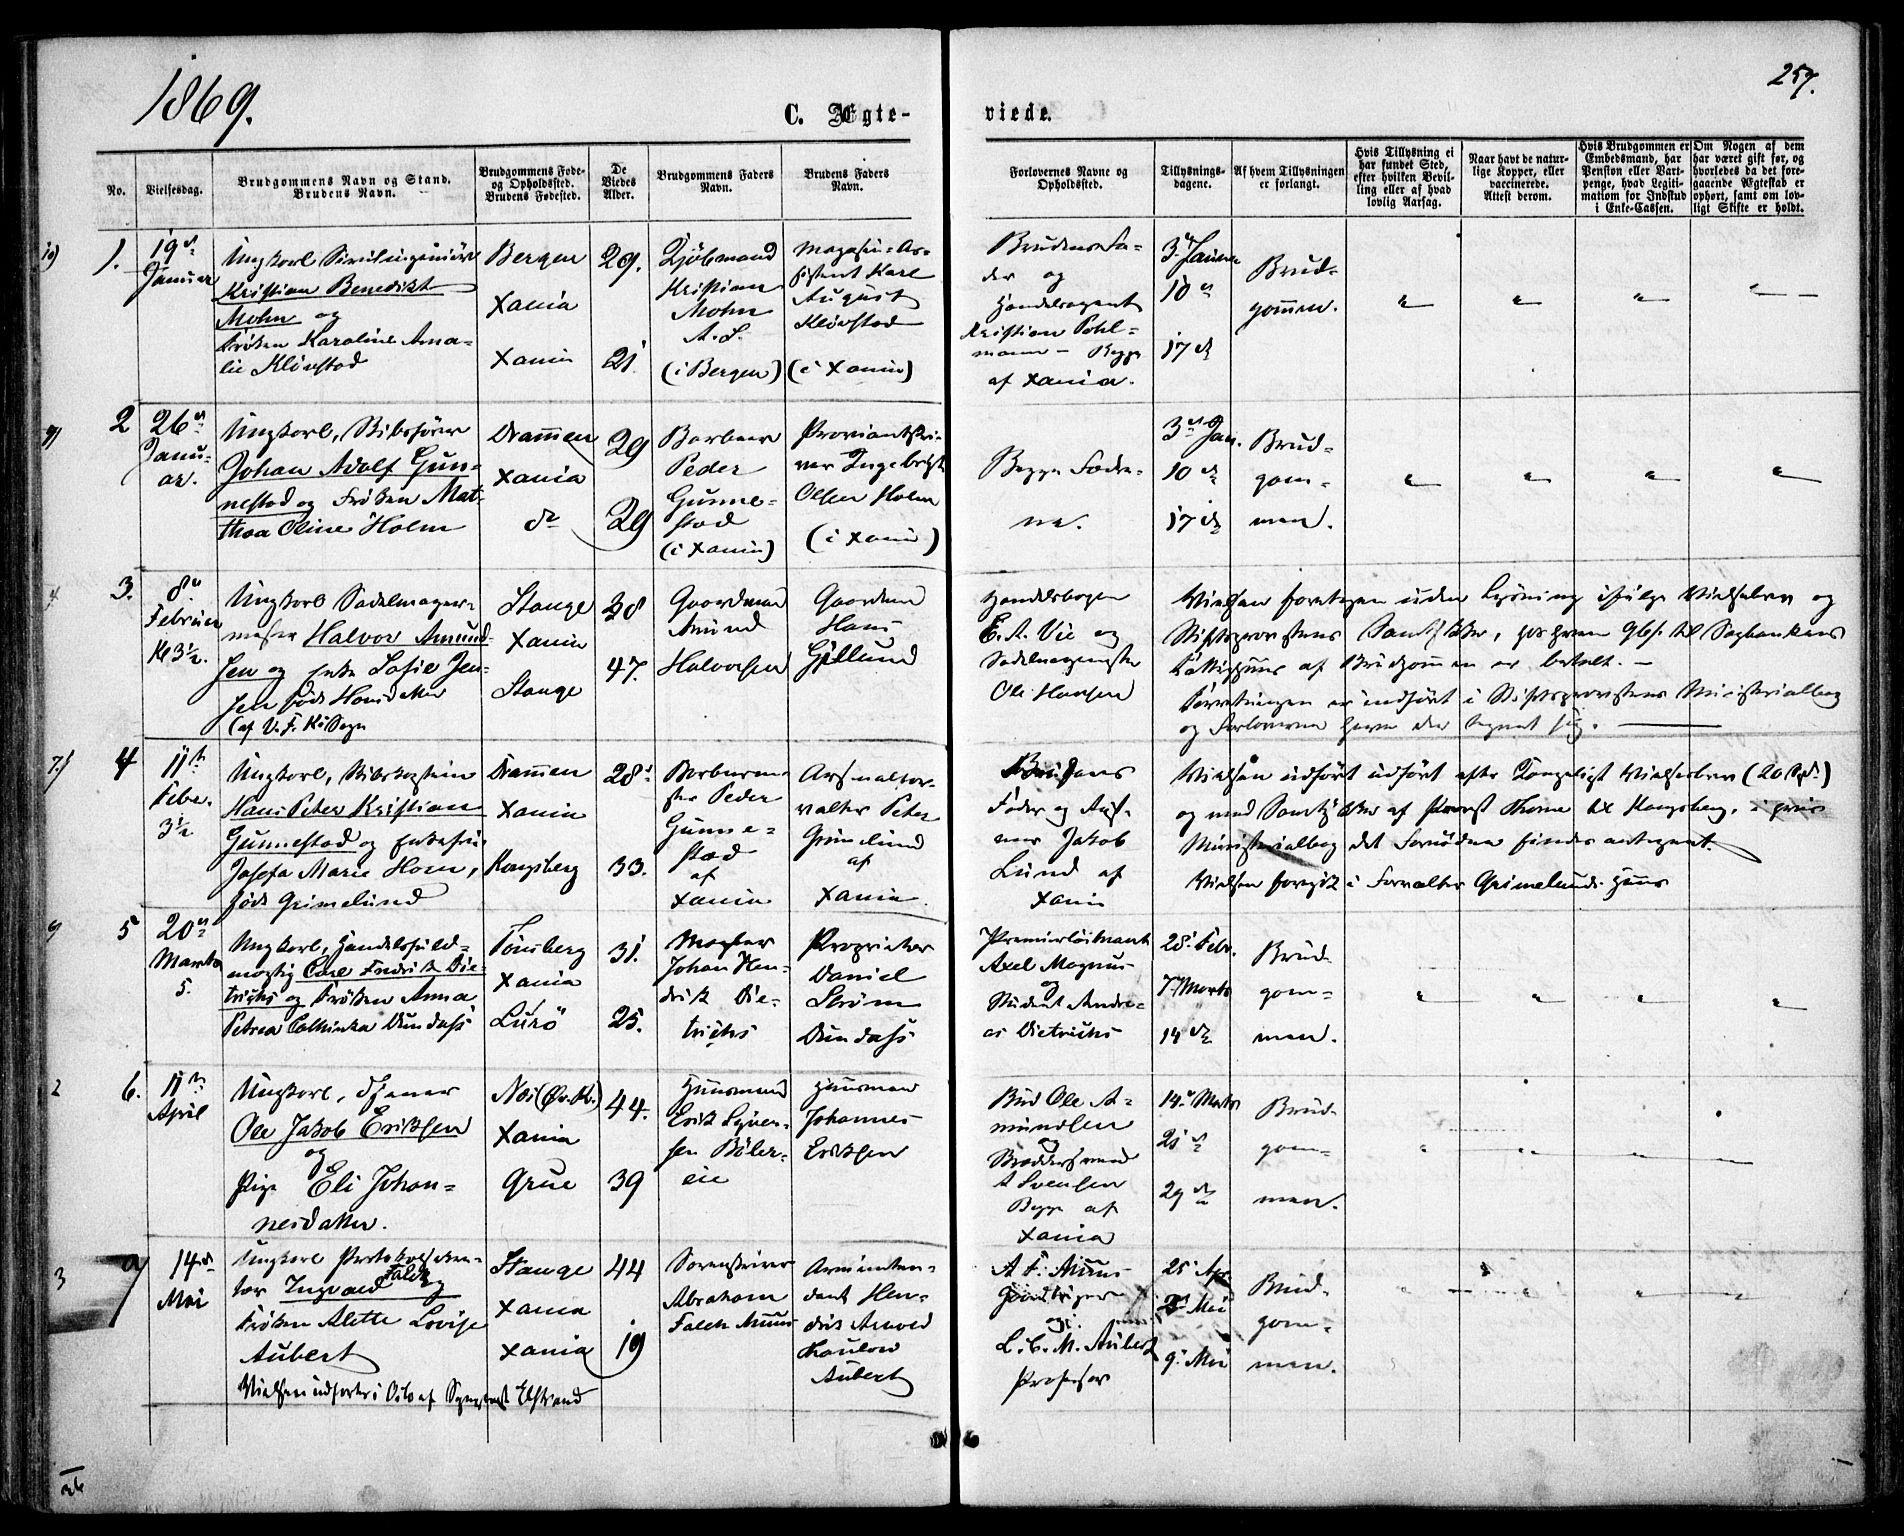 1869.
257.
C. Ægte-
viede.
No.
Vielsesdag.
Brudgommens Navn og Stand.
Brudens Navn.
Brudgommens Føde-
og Opholdssted.
Brudens Fødested.
De
Viedes
Alder.
Brudgommens Faders
Navn.
Brudens Faders
Navn.
Forlovernes Navne og
Opholdssted.
Tillysnings-
dagene.
Af hvem Tillysningen
er forlangt.
Hvis Tillysning ei
har fundet Sted,
efter hvilken Bevil-
ling eller af hvad
lovlig Aarsag.
Naar havt de natur-
lige Kopper, eller
vaccinerede.
Attest derom.
Hvis Brudgommen er
Embedsmand, har
Pension eller Vart-
penge, hvad Legiti-
mation for Indskud
i Enke-Cassen.
Om Nogen af dem
har været gift før, og
hvorledes da det fore-
gaaende Ægteskab er
ophørt, samt om lov-
ligt Skifte er holdt.
10)
1.
19de
Januar
Ungkarl Sivilingeniør
Kristian Benedikt
Mohn og
Frøken Karoline Ama-
lie Kløvstad
Bergen
Xania
Xania
29.
21.
Kjøbmand
Kristian
Mohn
A. S.
(i Bergen)
Magasin-As-
sistent Karl
August
Kløvstad
(i Xania)
Brudens Fa-
der og
Handelsagent
Kristian Pohl-
mann - Begge
af Xania.
3. Januar
10de
17de
Brud-
gommen.
9)
2
26de
Janu-
ar.
Ungkarl, Skibsfører
Johan Adolf Gun-
nestad og Frøken Mat-
thea Oline Holm
Drammen
Xania
do
29
29
Peder
Gunne-
stad
(i Xania)
Proviantskri-
ver Ingebrigt
Olsen Holm
(i Xania)
Begge Fædre-
ne.
3de Jan.
10de
17de
Brud-
gom-
men.
4
3.
8de
Februar
Kl 3½.
Ungkarl Sadelmager-
mester Halvor Amund-
sen og Enke Sofie Jen-
sen født Hansdatter
(af V. F. Ks Sogn
Stange
Xania
Stange
38
47.
Gaardmand
Amund
Halvorsen
Gaardman
Hans
Gillund
E. A. Vie og
Sadelmagermester
Ole Hansen
Vielsen foretagen uden Lysning ifølge Vielsebrev og
Brudgommen er betalt. -
Forretningen er indført i Stiftsprovstens Ministerialbog
og Forloverne have der tegnet sig.
7.)
4
11te
Febr.
3½
Hans Peter Kristian
Gunnestad og Enkefru
Josefa Marie Horn,
født Grimelund
Drammen
Xania
Kongsberg
28
33.
Peder
Gunne-
stad
af
Xania
Arsenalfor-
valter Peter
Grimelund
af
Xania.
Brudens
Fader og
Jakob
Lund af
Xania
Vielsen udført efter Kongeligt Vielsesbrev (20 Spd.)
og med Samtykke af Provst Thome til Kongsberg, i
Ministerialbog det Fornødne findes antegnet.
Vielsen foregik i Forvalter Grimelunds Huus
9
5
20de
Marts
5.
Ungkarl, Handelsfuld-
mægtig Carl Fredrik Die-
trichs og Frøken Anna
Petrea Cathinka Dundass
Tønsberg
Xania
Lurø
31.
25.
Mægler
Johan Hen-
drik Die-
trichs
Proprietær
Daniel
Strøm
Dundass
Premierløitnant
Axel Magnus
og
Student Andre-
as Dietrichs
28. Febr.
7. Marts
14de
Brud-
gom-
men.
2
6.
11te
April
Ungkarl, Tjener
Ole Jakob Eriksen
og
Pige Eli Johan-
nesdatter.
Næs (Øv. R.)
Xania
Grue
44.
39
Huusmand
Erik Syver-
sen Bøler-
eie
Huusmand
Johannes
Eriksen
Bud Ole A-
mundsen
og
A Svensen
Begge af
Xania
14. Marts
21de
29de
Brud-
gom-
men.
3
7
14de
Mai
Ungkarl
Ingvald Falck og
Frøken Alette Lovise
Aubert
Stange
Xania
Xania
44
19
Sorenskriver
Abraham
Falck Muus
Armeinten-
dant Hen-
drik Arnold
Thaulow
Aubert
A F. Muus
og
L. C. M. Aubert
Professor
25 Apr
2 Mai
9. Mai
Brud-
gom-
men.
Vielsen udførtes i Oslo af Sognepræst Elstrand